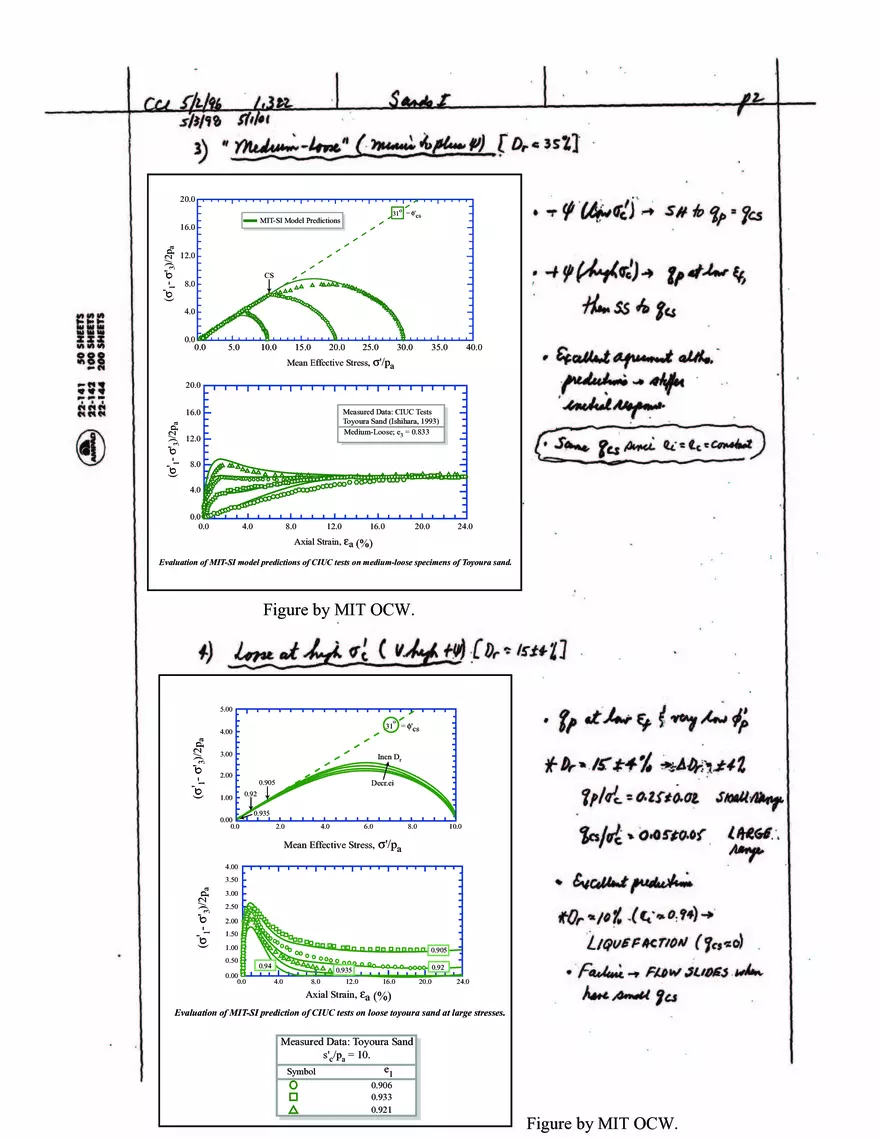 CCL 5/2/96 1.322 Sands I p2
5/3/98 5/1/01
3) "Medium-Loose" (minus to plus ψ) [Dr = 35%]
20.0
16.0
12.0
8.0
4.0
0.0
(σ'1- σ'3)/2pa
MIT-SI Model Predictions
31° = φ'cs
CS
0.0 5.0 10.0 15.0 20.0 25.0 30.0 35.0 40.0
Mean Effective Stress, σ'/pa
20.0
16.0
12.0
8.0
4.0
0.0
(σ'1- σ'3)/2pa
Measured Data: CIUC Tests
Toyoura Sand (Ishihara, 1993)
Medium-Loose; e3 = 0.833
0.0 4.0 8.0 12.0 16.0 20.0 24.0
Axial Strain, εa (%)
Evaluation of MIT-SI model predictions of CIUC tests on medium-loose specimens of Toyoura sand.
Figure by MIT OCW.
• -ψ (low σ'c) → SH to qp = qcs
• +ψ (high σ'c) → qp at low εf,
then SS to qcs
• Excellent agreement altho.
predictions → stiffer
initial response
• Same qcs since ei = ec = constant
22-141 50 SHEETS
22-142 100 SHEETS
22-144 200 SHEETS
AMPAD
4) Loose at high σ'c (V. high +ψ) [Dr = 15±4%]
5.00
4.00
3.00
2.00
1.00
0.00
(σ'1- σ'3)/2pa
31° = φ'cs
Incn Dr
Decr.ei
0.905
0.92
0.935
0.0 2.0 4.0 6.0 8.0 10.0
Mean Effective Stress, σ'/pa
4.00
3.50
3.00
2.50
2.00
1.50
1.00
0.50
0.00
(σ'1- σ'3)/2pa
0.905
0.92
0.935
0.94
0.0 4.0 8.0 12.0 16.0 20.0 24.0
Axial Strain, εa (%)
Evaluation of MIT-SI prediction of CIUC tests on loose toyoura sand at large stresses.
Measured Data: Toyoura Sand
s'c/pa = 10.
Symbol e1
0.906
0.933
0.921
Figure by MIT OCW.
• qp at low εf & very low φ'p
* Dr = 15 ±4% → ΔDr = ±4%
qp/σ'c = 0.25±0.02 Small range
qcs/σ'c = 0.05±0.05 LARGE
range
• Excellent prediction
* Dr ≈ 10% (ei = 0.94) →
LIQUEFACTION (qcs=0)
• Failure → FLOW SLIDES when
have small qcs